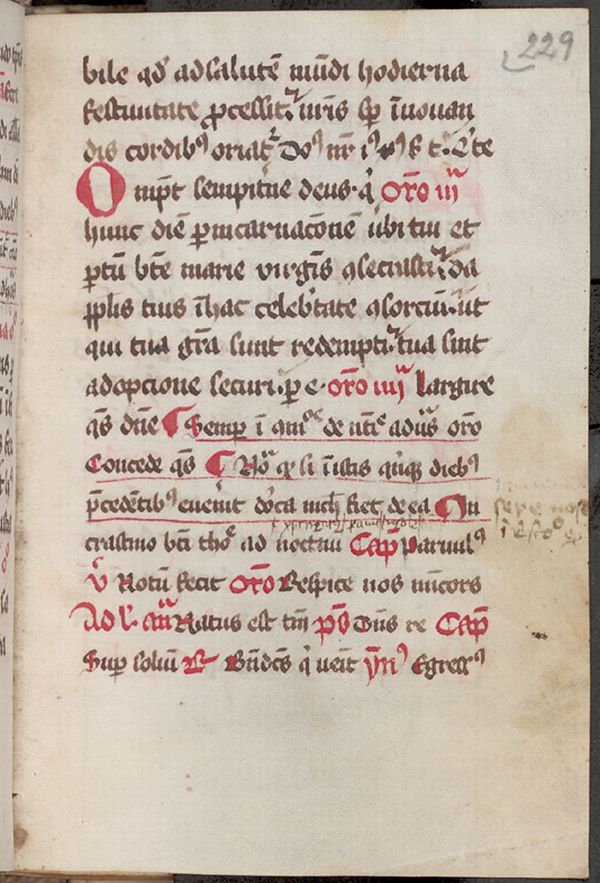 229
bile qd' ad salutē mūdi hodierna
festiuitate ꝓcessit: nr̄is sp̄ īnouan
dis cordibꝰ oriatꝰ Doꝰ nr̄ t' ete
Omp̄t sempit'ne deus q' oro iii
hunc diē ꝑ incarnacōnem ubi tui et
ꝑtū bt̄e marie virgīs ꝯsecrasti: da
pplis tuis ī hac celeb'tate ꝯsorciū: ut
qui tua gr̄a sunt redempti: tua sint
adopcione securi. ꝑ e. oro iiii largire
qs̄ dn̄e ¶ Semꝑ ī de nt̄e adūs oro
Concede qs̄ ¶ No qꝫ si ī istis qīqꝫ diebꝰ
p̄cedētibꝰ euen'it dōca nichil fiet de ea ¶ In
crastino bt̄i tho' ad noctuū Cap̄ Paruulꝰ
v' Notū fecit oro Respice nos mīcors
Ad l' an̄ Natus est PS Dn̄s re Cap̄
Sup̄ soliū R' Bn̄dc̄s q' uēit ymꝰ Egressꝰ